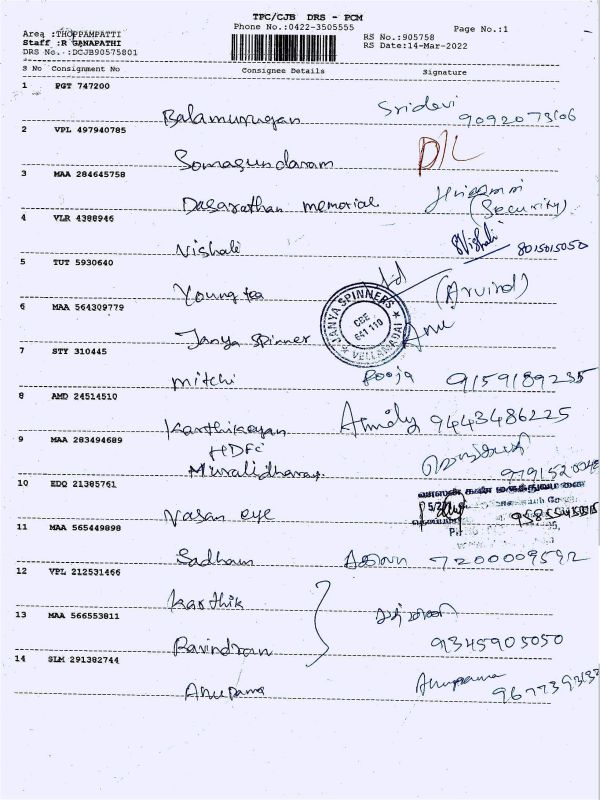 TPC/CJB DRS - PCM
Phone No.:0422-3505555
Page No.:1
Area :THOPPAMPATTI
Staff :R GANAPATHI
DRS No.:DCJB90575801
RS No.:905758
RS Date:14-Mar-2022
S No Consignment No Consignee Details Signature
1 PGT 747200
Balamurugan Sridevi 9092073106
2 VPL 497940785
Somasundaram D/L
3 MAA 284645758
Dasarathan memorial (Security)
4 VLR 4388946
Vishali Vishali 8015015050
5 TUT 5930640
Young tea (Arvind)
6 MAA 564309779
Janya Spinner Anu
JANYA SPINNERS
CBE
641 110
VELLAMADAI
7 STY 310445
Mitchi Pooja 9159189235
8 AMD 24514510
Karthikeyan 9443486225
9 MAA 283494689
HDFC
Muralidharan
10 EDQ 21385761
Vasan eye
வாசன் கண் மருத்துவமனை
11 MAA 565449898
Sadham 7200009592
12 VPL 212531466
Karthik
13 MAA 566553811
Ravindran 9345905050
14 SLM 291382744
Anupama Anupama